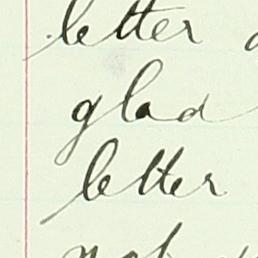 letter
glad
letter